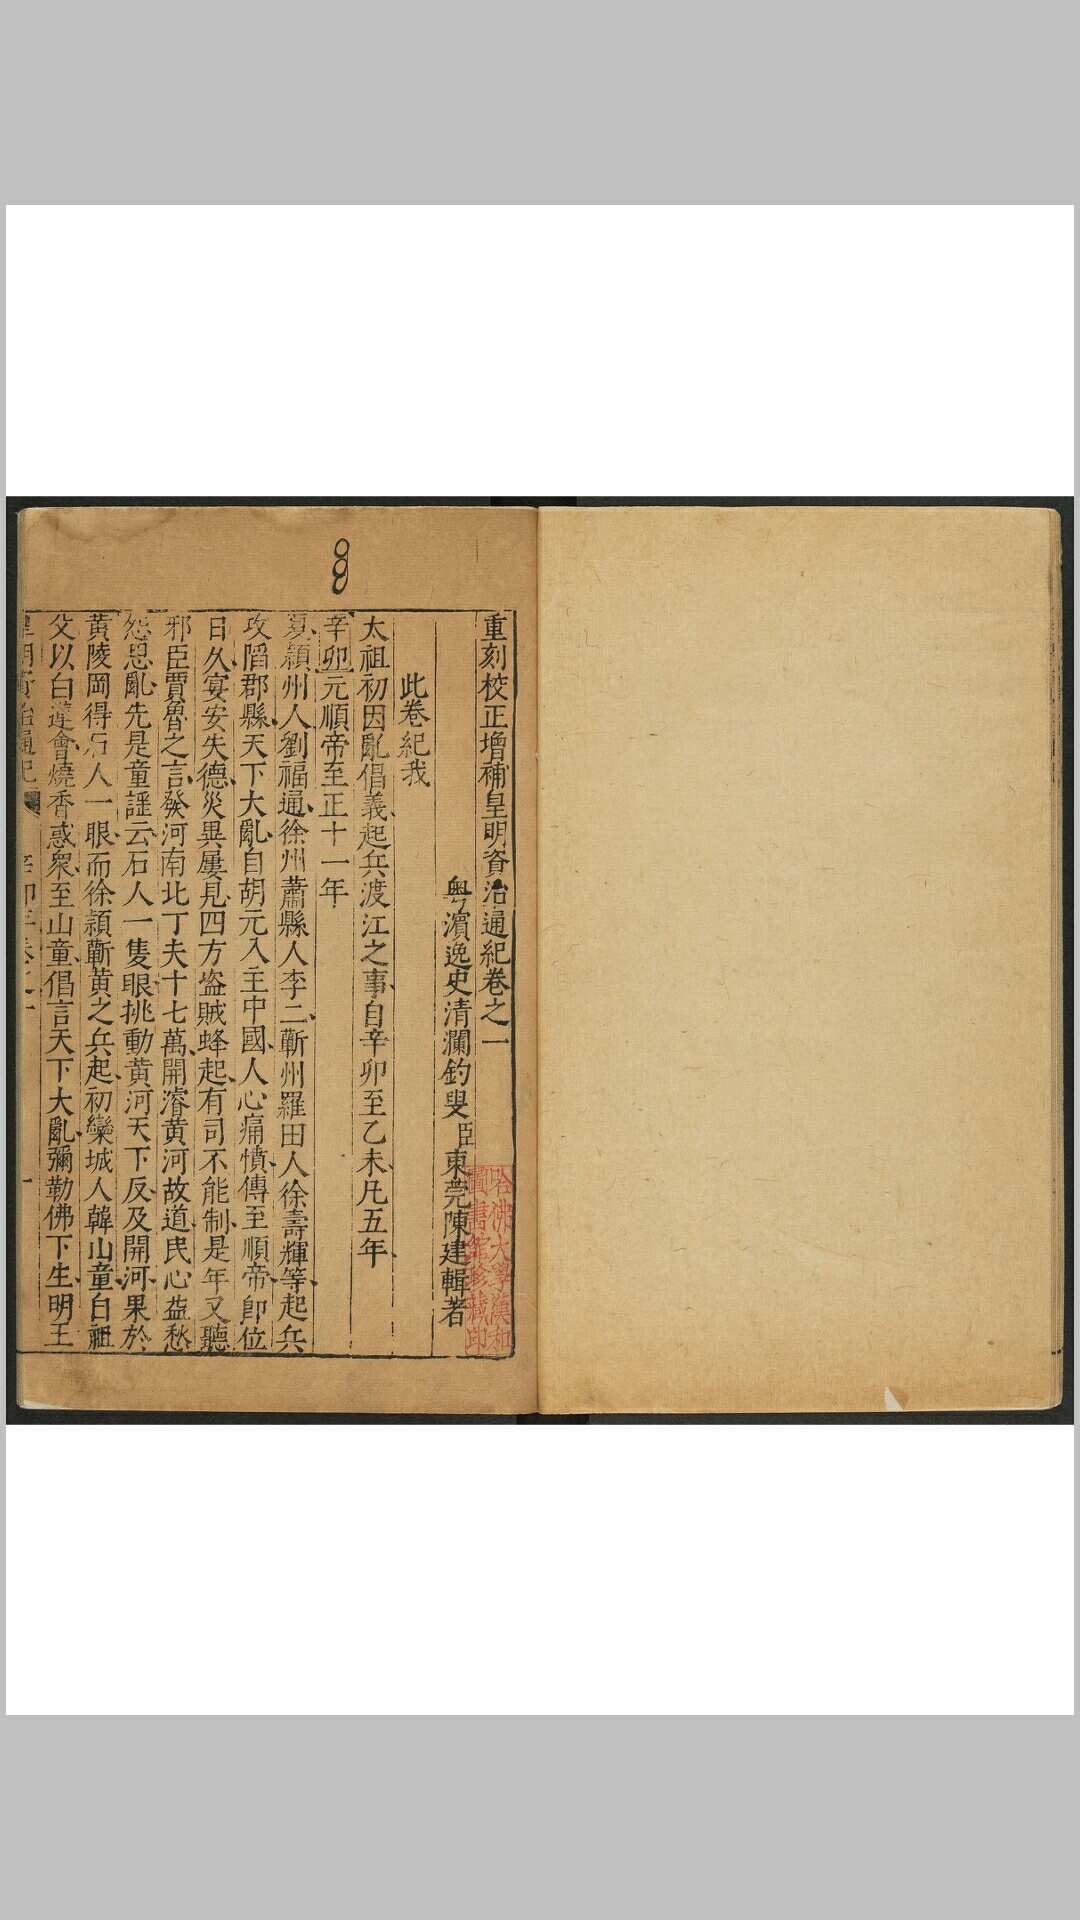 重刻校正增補皇明資治通紀卷之一
粵濱逸史清瀾釣叟臣東莞陳建輯著
此卷紀我
太祖初因亂倡義起兵渡江之事自辛卯至乙未凡五年
辛卯元順帝至正十一年
夏潁州人劉福通徐州蕭縣人李二蘄州羅田人徐壽輝等起兵
攻陷郡縣天下大亂自胡元入主中國人心痛憤傳至順帝卽位
日久宴安失德災異屢見四方盜賊蜂起有司不能制是年又聽
邪臣賈魯之言發河南北丁夫十七萬開濬黃河故道民心益愁
怨思亂先是童謡云石人一隻眼挑動黃河天下反及開河果於
黃陵岡得石人一眼而徐潁蘄黃之兵起初欒城人韓山童自祖
父以白蓮會燒香惑衆至山童倡言天下大亂彌勒佛下生明王
皇明資治通紀 辛卯年卷之一 一
哈佛大學漢和
圖書館珍藏印
8